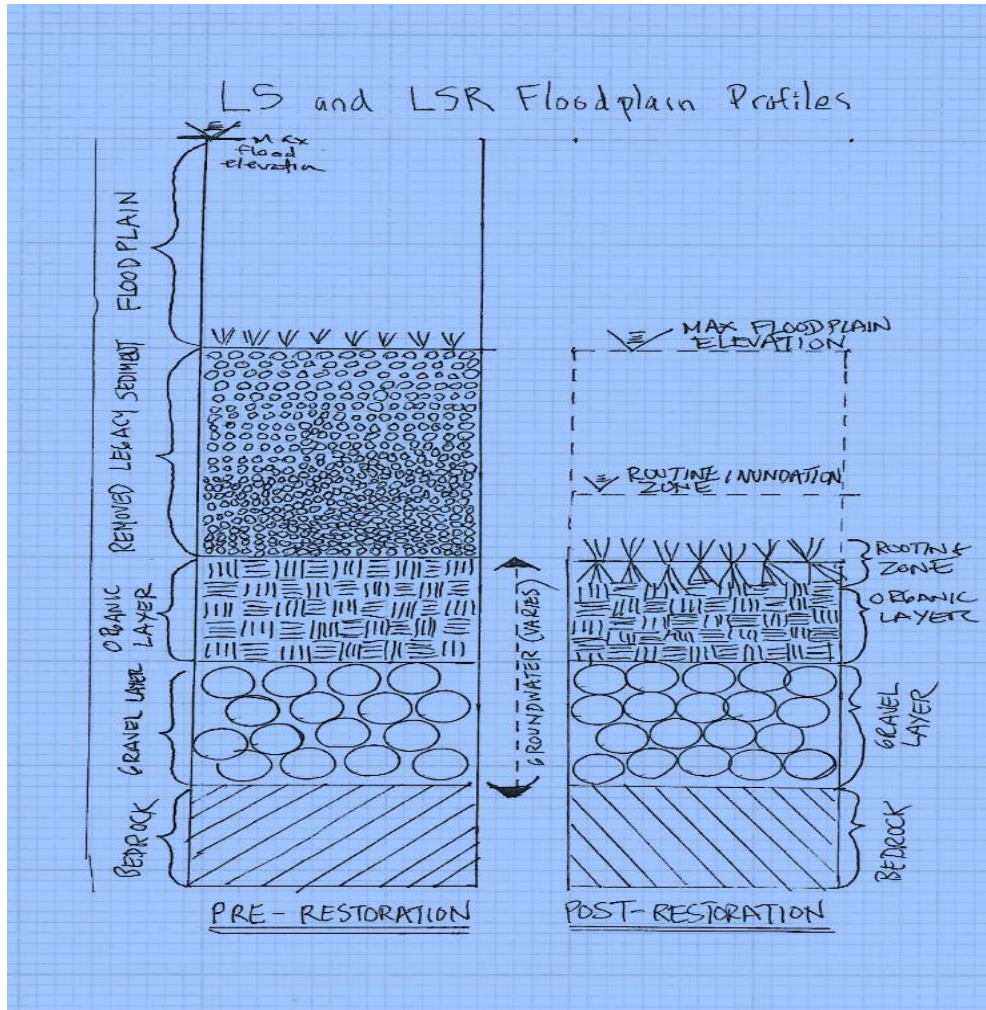 LS and LSR Floodplain Profiles
MAX
flood
elevation
FLOODPLAIN
REMOVED LEGACY SEDIMENT
ORGANIC
LAYER
GRAVEL LAYER
BEDROCK
GROUNDWATER (VARIES)
MAX FLOODPLAIN
ELEVATION
ROUTINE INUNDATION
ZONE
ROOTING
ZONE
ORGANIC
LAYER
GRAVEL
LAYER
BEDROCK
PRE-RESTORATION
POST-RESTORATION